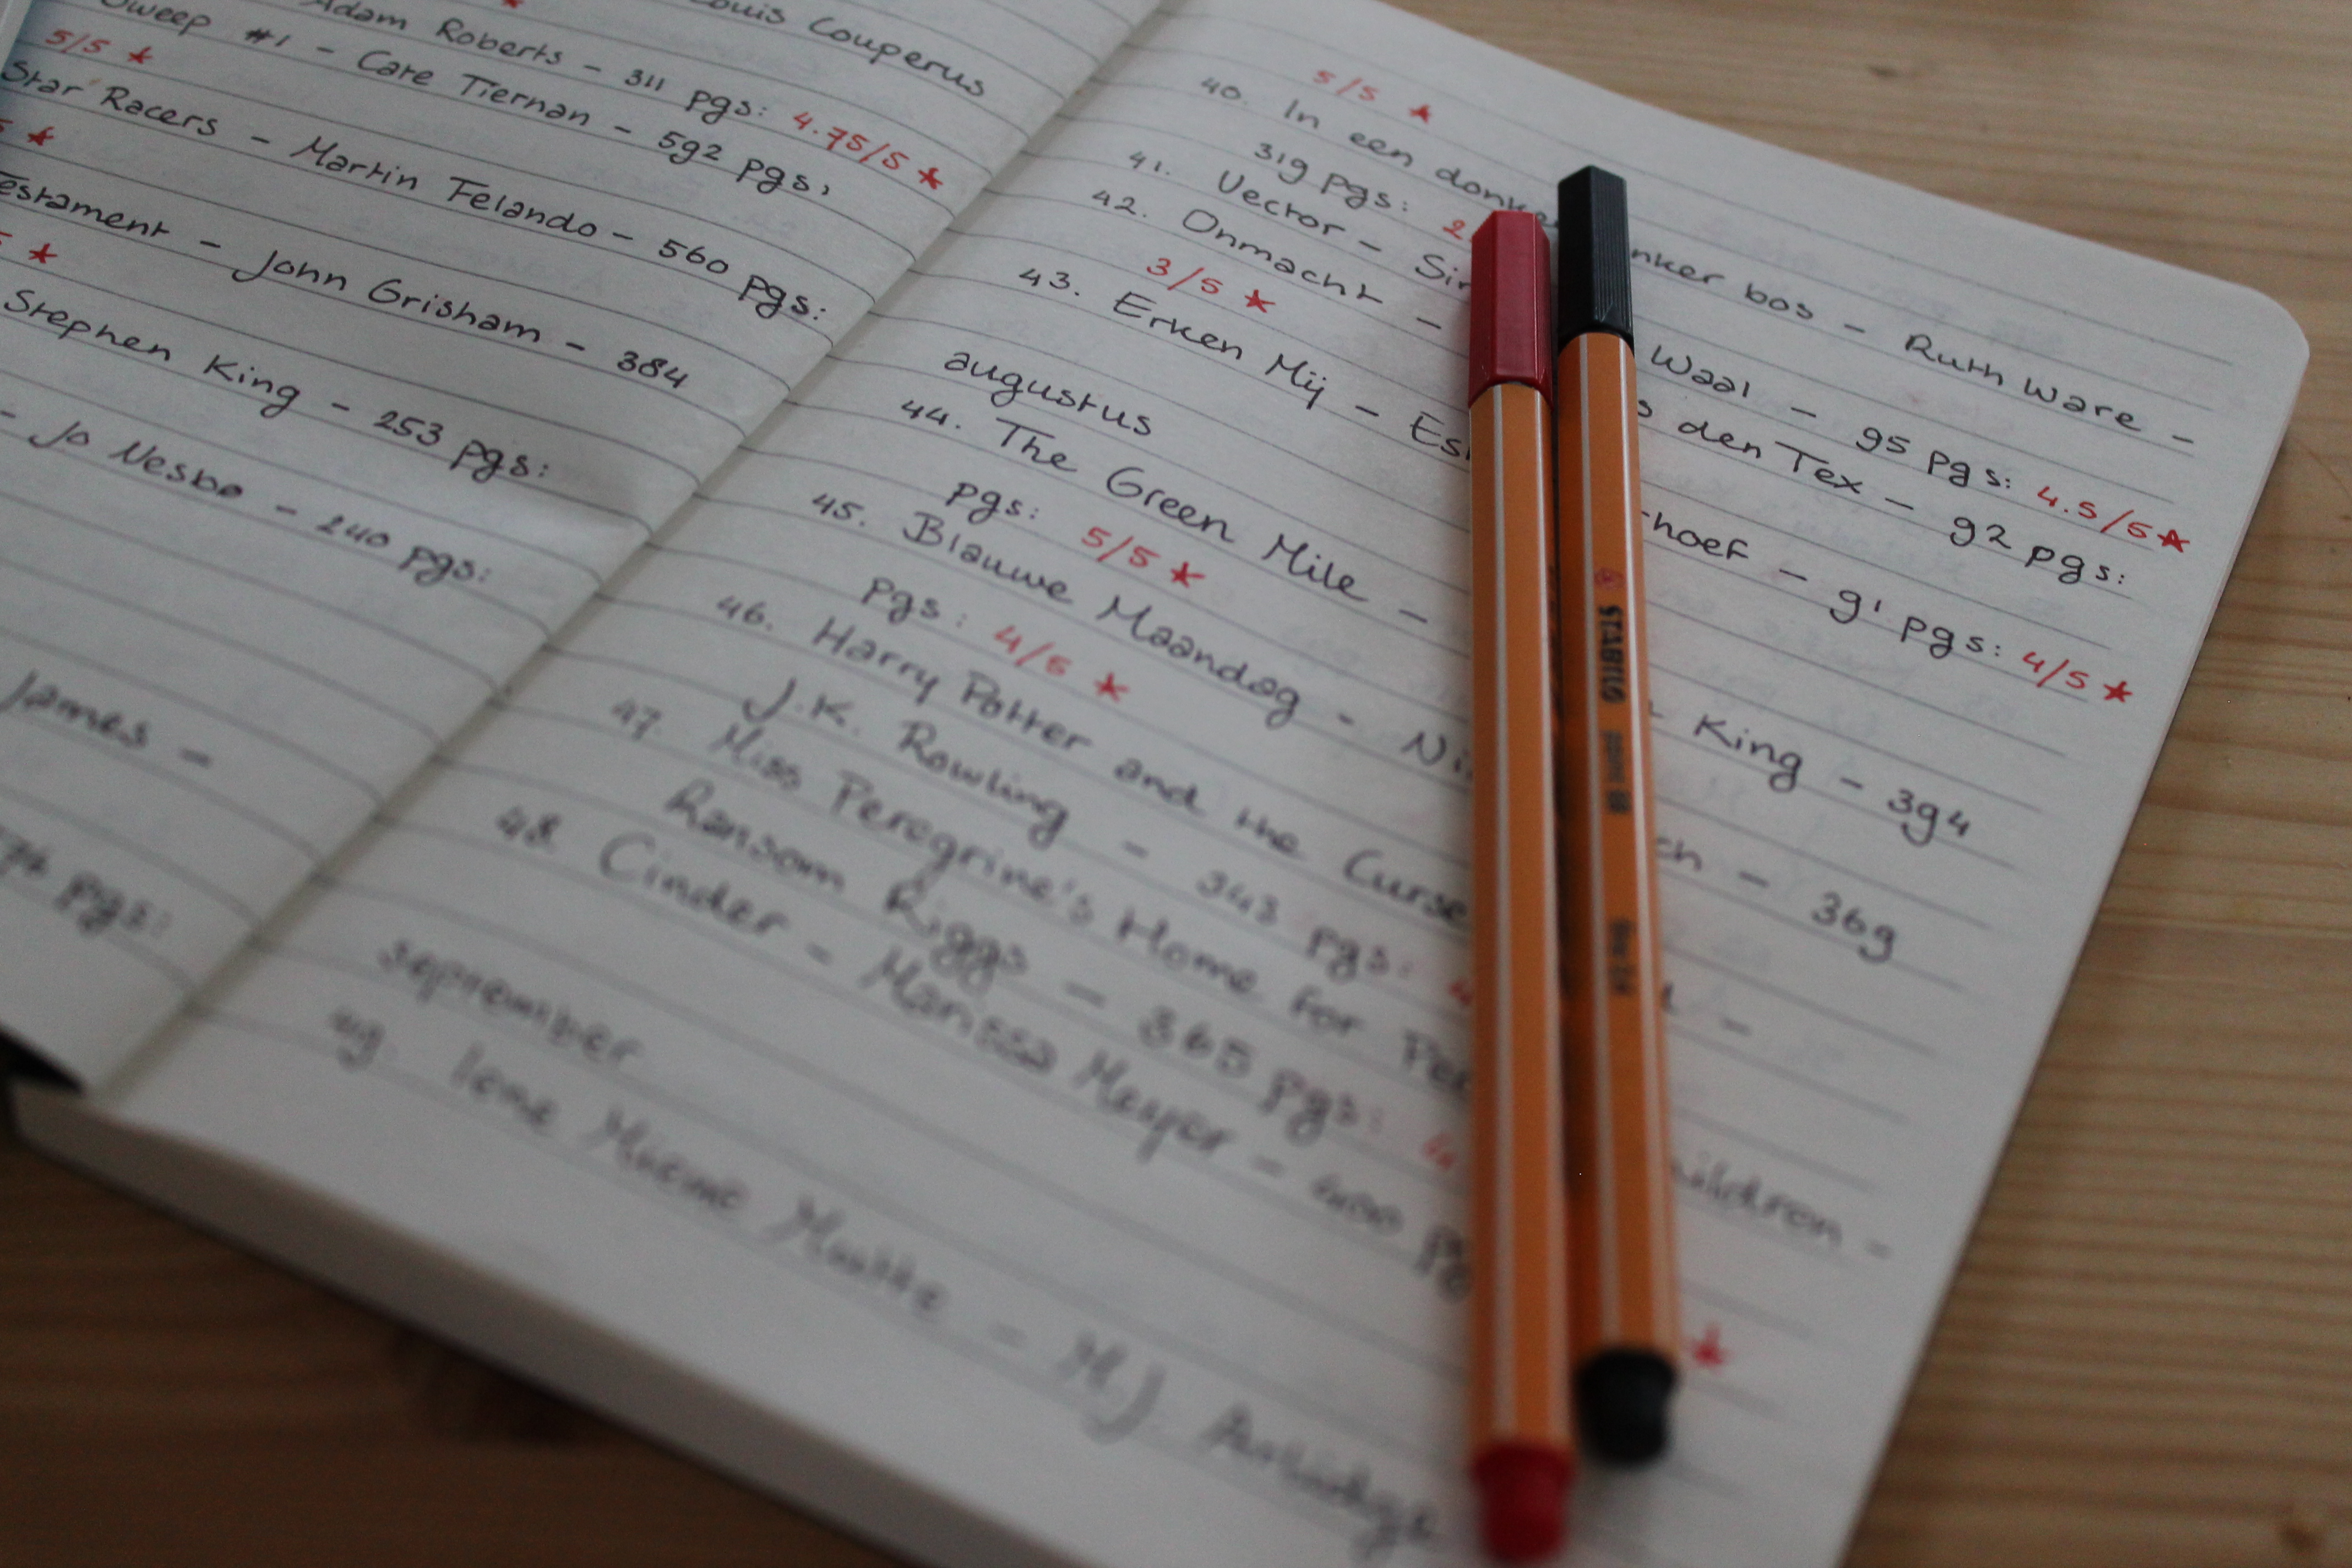 Louis Couperus
Adam Roberts - 311 pgs: 4.75/5 ★
Sweep #1 - Cate Tiernan - 592 pgs,
5/5 ★
Star Racers - Martin Felando - 560 pgs:
★
Testament - John Grisham - 384
★
Stephen King - 253 pgs:
- Jo Nesbø - 240 pgs:
James -
pgs:
5/5 ★
40. In een donker, donker bos - Ruth Ware -
319 pgs: 2
41. Vector - Waal - 95 pgs: 4.5/5 ★
42. Onmacht - den Tex - 92 pgs:
3/5 ★
43. Erken Mij - hoef - 91 pgs: 4/5 ★
augustus
44. The Green Mile - King - 394
pgs: 5/5 ★
45. Blauwe Maandag - Ni ch - 369
pgs: 4/5 ★
46. Harry Potter and the Curse -
J.K. Rowling - 343 pgs: 4
47. Miss Peregrine's Home for Pe hildren -
Ransom Riggs - 365 pgs: 4
48. Cinder - Marissa Meyer - 400 pg ★
september
49. Iene Miene Mutte - M.J. Arlidge
STABILO